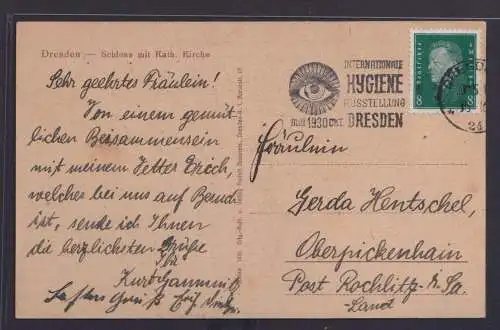 Dresden — Schloss mit Kath. Kirche
Sehr geehrtes Fräulein!
Von einem gemüt-
lichen Beisammensein
mit meinem Vetter Erich,
welcher bei uns auf Besuch
ist, sende ich Ihnen
die herzlichsten Grüße
Ihr
Kurt
INTERNATIONALE
HYGIENE
AUSSTELLUNG
MAI 1930 OKT. DRESDEN
8 8
Fräulein
Gerda Hentschel,
Oberpickenhain
Post Rochlitz i. Sa.
Land